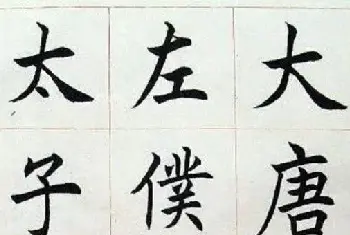 大唐
左僕
太子